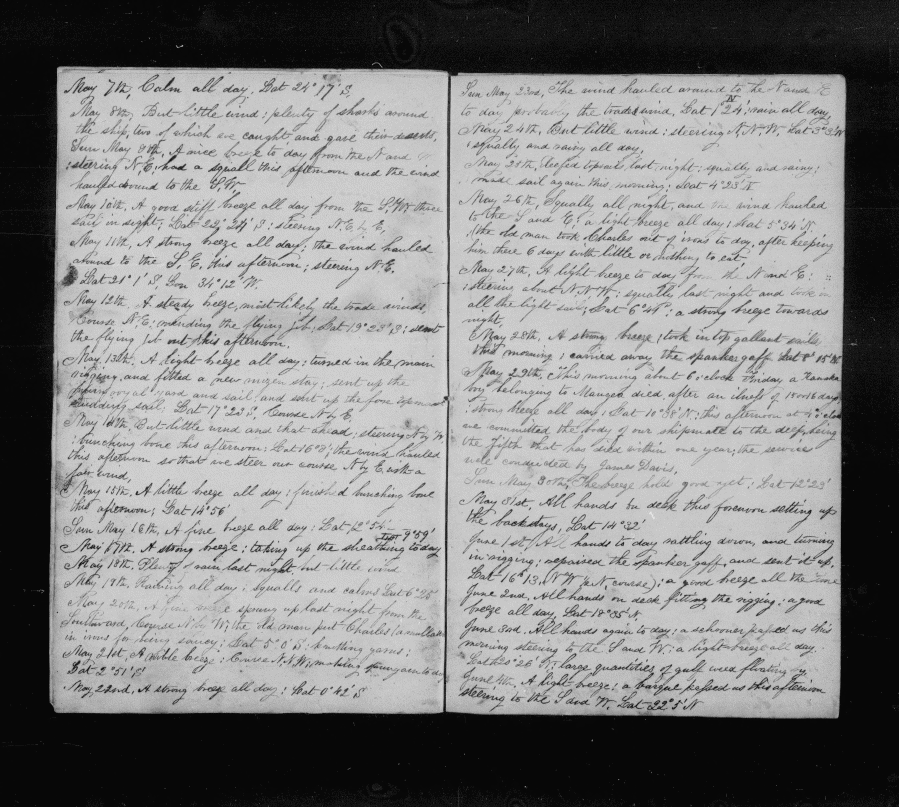 May 7th, Calm all day, Lat 24° 17' S,
May 8th, But little wind; plenty of sharks around
the ship, two of which we caught and gave their desert,
Sun May 9th, A nice breeze to day from the N and
; steering N.E; had a squall this afternoon and the wind
hauled around to the S.W,
May 10th, A good stiff breeze all day from the S,W three
sail in sight; Lat 22° 24' S; steering N.E by E,
May 11th, A strong breeze all day; the wind hauled
around to the S, E, this afternoon; steering N.E.
Lat 21° 1' S, Lon 34° 12' W.
May 12th, A steady breeze, most likely the trade winds,
Course N,E; mending the flying jib; Lat 19° 23' S; sent
the flying jib out this afternoon.
May, 13th, A light breeze all day; turned in the main
rigging, and fitted a new mizen stay; sent up the
royal yard and sail, and sent up the fore
studding sail; Lat 17° 23' S, Course N by E
May 14th, But little wind and that ahead; steering N by W,
; bunching bone this afternoon; Lat 16° S; the wind hauled
this afternoon so that we steer our course N by E with a
fair wind,
May 15th, A little breeze all day; finished bunching bone
this afternoon; Lat 14° 56'
Sun May 16th, A fine breeze all day; Lat 12° 54'
Lat 9° 59'
May 17th, A strong breeze; taking up the sheathing to day
May 18th, Plenty of rain last night, but little wind
May 19th, Raining all day; squalls and calms Lat 6° 25'
May 20th, A fine breeze sprung up last night from the
Southward, Course N by W; the old man put Charles (a mullatto)
in irons for being saucy; Lat 5° 0' S; knotting yarns;
May 21st, A noble breeze; Course N.N.W; making to day
Lat 2° 51' S
May 22nd, A strong breeze all day; Lat 0° 42' S
Sun May 23rd, The wind hauled around to the N and E
to day probably the trade wind, Lat 1° 24' N; rain all day,
May 24th, But little wind; steering N.N.W. Lat 3° 3' N
; squally and rainy all day,
May 25th, Reefed topsails last night; squally and rainy;
made sail again this morning; Lat 4° 23' N
May 26th, Squally all night, and the wind hauled
to the S and E, a light breeze all day; Lat 5° 34' N.
; the old man took Charles out of irons to day, after keeping
him there 6 days with little or nothing to eat
May 27th, A light breeze to day from the N and E;
; steering about N.N.W; squally last night and took in
all the light sails; Lat 6° 41'; a strong breeze towards
night,
May 28th, A strong breeze; took in top gallant sails
this morning; carried away the spanker gaff Lat 8° 15' N
May 29th, This morning about 6 o'clock Friday, a Kanaka
boy belonging to Mangea died after an illness of 15 or 16 days
; strong breeze all day; Lat 10° 38' N; this afternoon at 4 o'clock
we committed the body of our shipmate to the deep, being
the fifth that has died within one year; the services
were conducted by James Davis,
Sun May 30th, The breeze holds good yet; Lat 12° 23'
May 31st, All hands on deck this forenoon setting up
the backstays, Lat 14° 32'
June 1st, All hands to day rattling down, and turning
in rigging; repaired the spanker gaff, and sent it up.
Lat 16° 13, N.W (a N, course); a good breeze all the time
June 2nd, All hands on deck fitting the rigging; a good
breeze all day, Lat 18° 35' N,
June 3rd, All hands again to day; a schooner passed us this
morning steering to the S and W; a light breeze all day.
Lat 20° 26' N; large quantities of gulf weed floating by
June 4th, A light breeze; a barque passed us this afternoon
steering to the S and W, Lat 22° 5' N